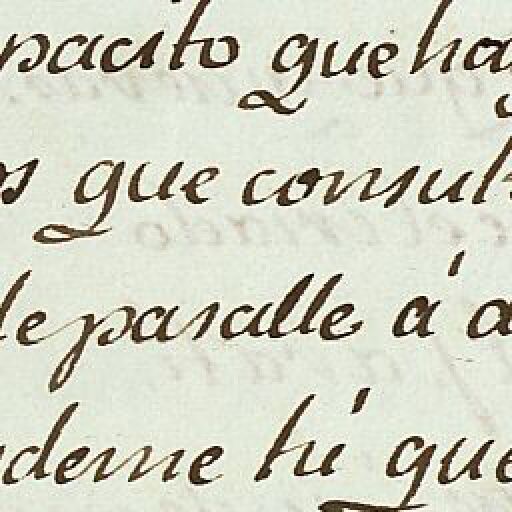 pacito que ha
os que consul
le pasalle á a
deme tú que